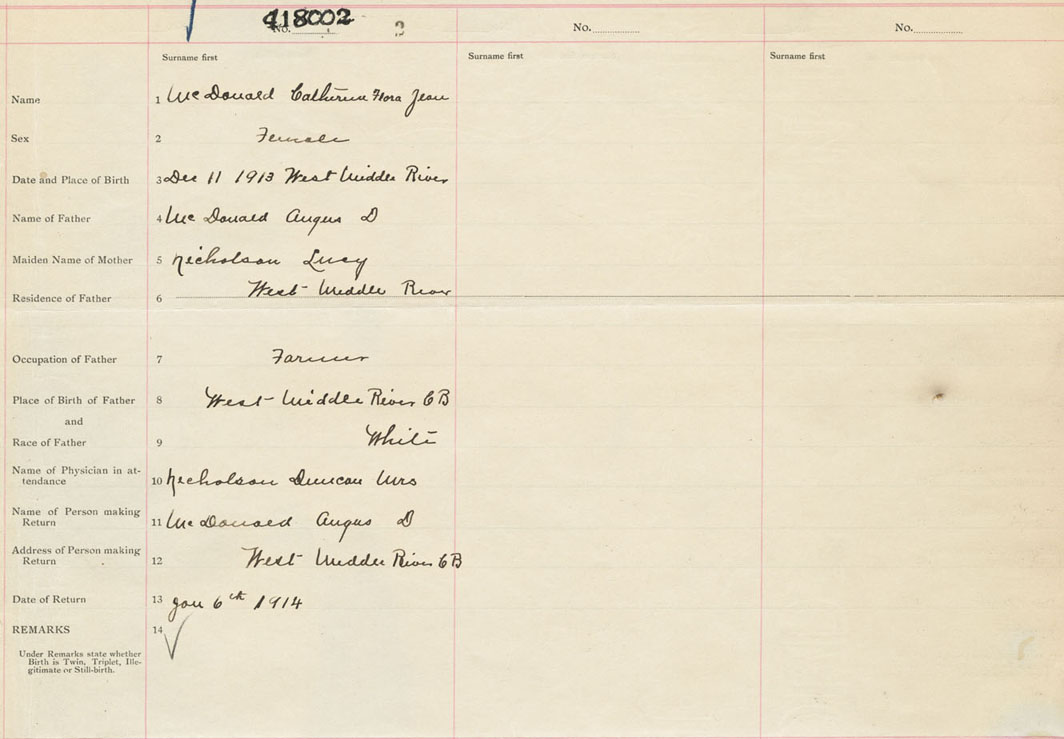 418002
No. 3 No. No.
Surname first Surname first Surname first
Name 1 McDonald Catherine Flora Jean
Sex 2 Female
Date and Place of Birth 3 Dec 11 1913 West Middle River
Name of Father 4 McDonald Angus D
Maiden Name of Mother 5 Nicholson Lucy
Residence of Father 6 West Middle River
Occupation of Father 7 Farmer
Place of Birth of Father 8 West Middle River C B
and
Race of Father 9 White
Name of Physician in at-
tendance 10 Nicholson Duncan Mrs
Name of Person making
Return 11 McDonald Angus D
Address of Person making
Return 12 West Middle River C B
Date of Return 13 Jan 6th 1914
REMARKS 14
Under Remarks state whether
Birth is Twin, Triplet, Ille-
gitimate or Still-birth.